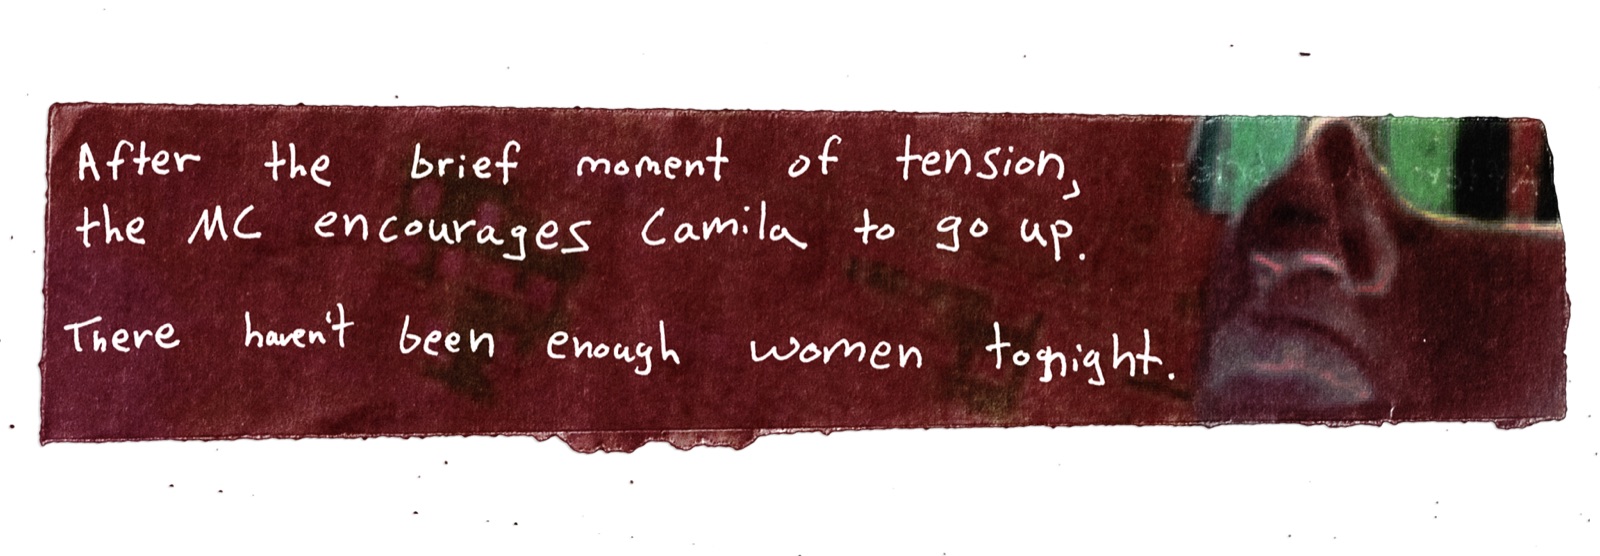 After the brief moment of tension,
the MC encourages Camila to go up.
There haven't been enough women tognight.